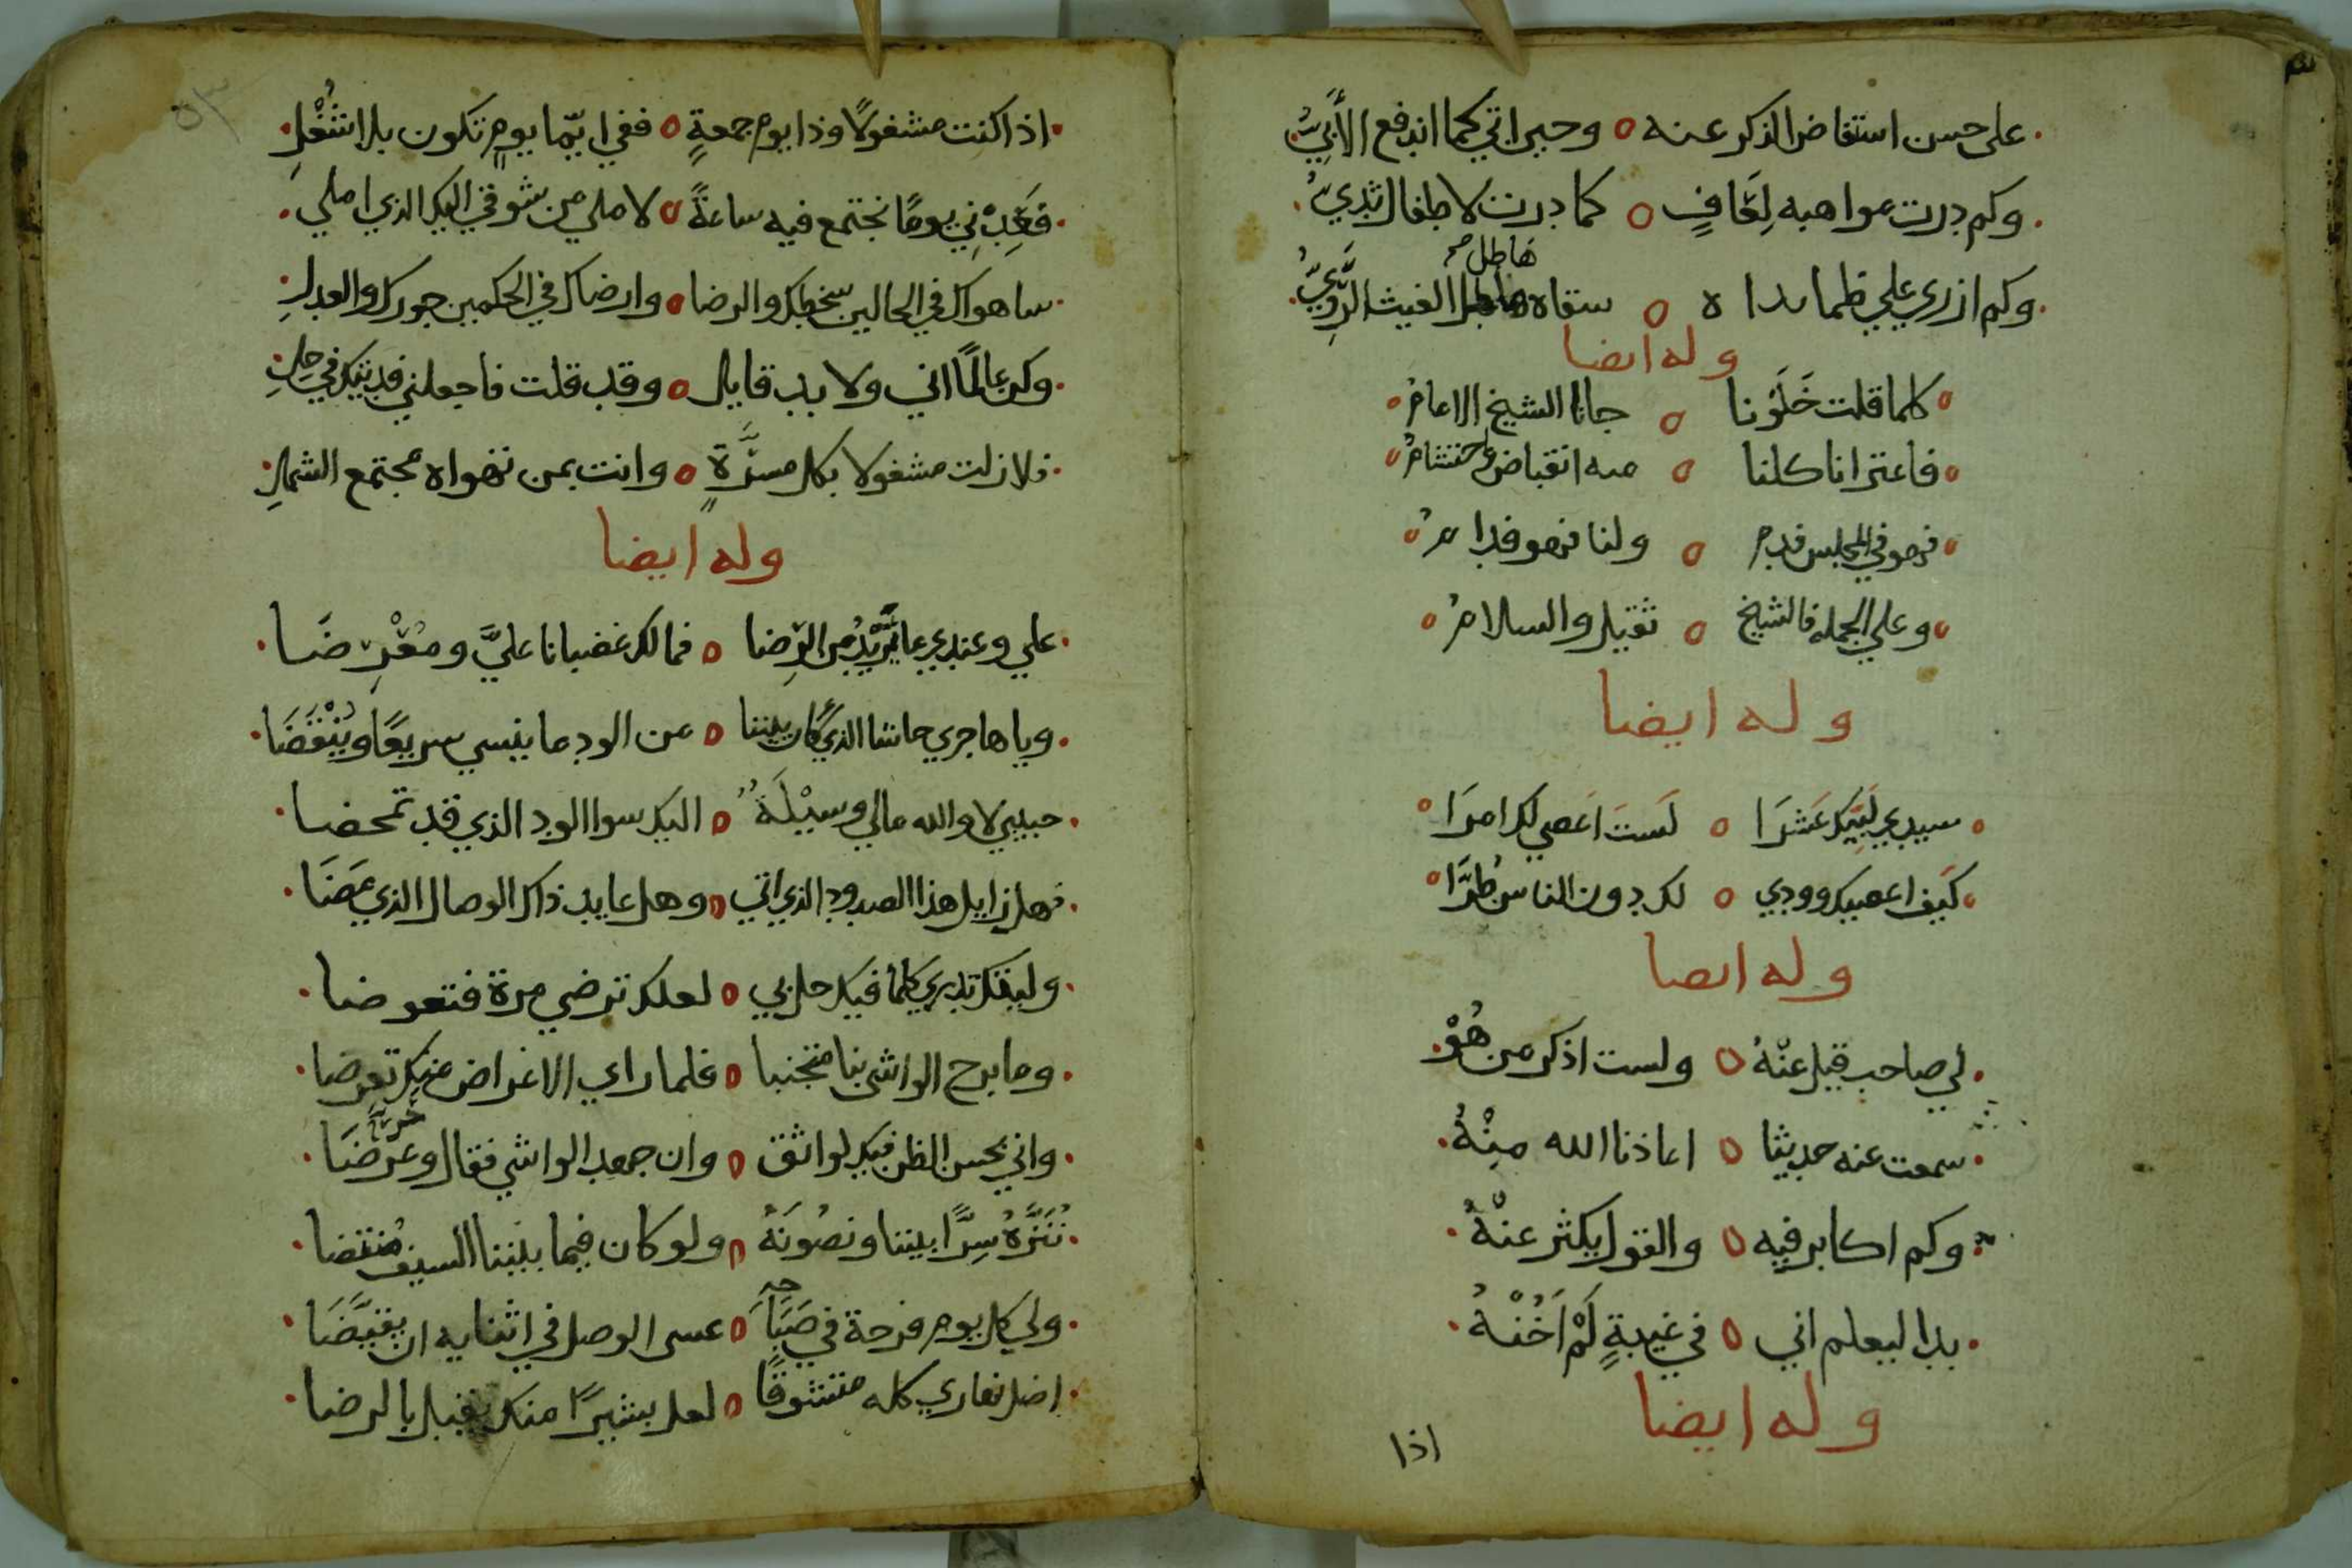 على حسن استفاض الذكر عنه ه وحيراتي كما اندفع الأَتِيُّ
وكم درت مواهبه لِعَافٍ ه كما درت لاطفال ثديُّ
هاطل صح
وكم ازري علي ظما ه سقاه الغيث الرَّوِيُّ
وله ايضا
كلما قلت خَلَوْنا ه جانا الشيخ الامامُ
فاعترانا كلنا ه منه انقباض واحتشامُ
فهو في المجلس فدم ه ولنا فهو فدامُ
وعلي الجمله فالشيخ ه ثقيل والسلامُ
وله ايضا
سيدي لبَّيك عَشرَا ه لَستَ اَعصي لك امرَا
كَيف اعصيك وودي ه لك دون الناس طُرَّا
وله ايضا
لي صاحب قيل عنْهُ ه ولست اذكر من هُوْ
سمعت عنه حديثا ه اعاذنا الله مِنْهُ
وكم اكابر فيه ه والقول يكثر عنْهُ
بدا ليعلم اني ه في غيبةٍ لَمْ اَخُنْهُ
وله ايضا
اذا
٥٣
اذا كنت مشغولًا وذا يوم جمعةٍ ه ففي ايّما يومٍ تكون بلا شُغْلِ
فَعِدْنِي يومًا نجتمع فيه ساعةً ه لاملي من شوقي اليك الذي املي
ساهواك في الحالين سخطك والرضا ه وارضاك في الحكمين جورك والعدلِ
وكن عالمًا اني ولا بد قايل ه وقد قلت فاجعلني فديتك في حِلِّ
فلا زلت مشغولا بكل مسرَّةٍ ه وانت بمن تهواه مجتمع الشملِ
وله ايضا
علي وعندي ما تُرِيْدُ من الرِضا ه فما لك غضبانا عليَّ ومُعْرِضَا
ويا هاجري حاشا الذي كان بيننا ه من الود ما ينسي سريعًا ويُنْقَضَا
حبيبي لا والله مالي وسيْلَةُ ه اليك سوا الود الذي قد تمحضا
فهل زايل هذا الصدود الذي اتي ه وهل عايد ذاك الوصال الذي مَضَا
وليتك تدري كلما فيك حل بي ه لعلك ترضي مرة فتعوضا
وما برح الواشي بنا متجنبا ه فلما راي الاعراض منك تعرضا
واني بحسن الظن فيك لواثق ه وان جهد الواشي فقال وعرَّضَا
نُنَزِّهُ سِرًّا بيننا ونصُونَهُ ه ولو كان فيما بيننا السيف مُنتضا
ولي كل يوم فرحة في صَبَاحِهِ ه عسى الوصل في اثنايه ان يقيَّضَا
اضل نهاري كله متشوقًا ه لعل بشيرًا منك يقبل بالرضا